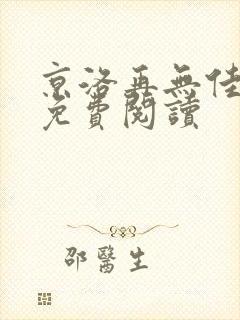 京洛再無佳
免費閱讀
邵醫生